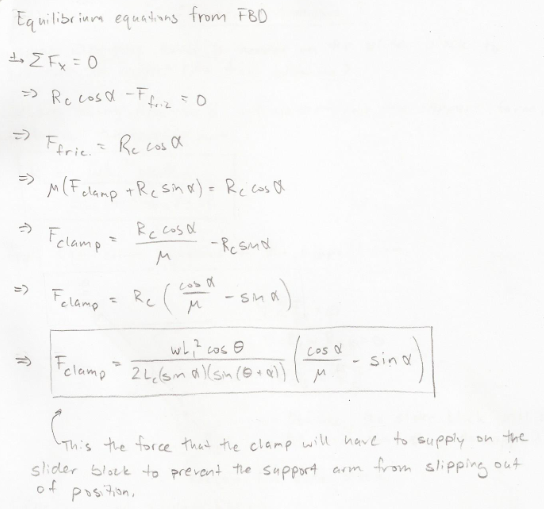 Equilibrium equations from FBD
+→ ΣFx = 0
⇒ Rc cosα - Ffric = 0
⇒ Ffric. = Rc cos α
⇒ μ(Fclamp + Rc sin α) = Rc cos α
⇒ Fclamp = Rc cos α / μ - Rc sin α
⇒ Fclamp = Rc (cos α / μ - sin α)
⇒ Fclamp = wL₁² cos θ / 2Lc(sin α)(sin(θ+α)) (cos α / μ - sin α)
This the force that the clamp will have to supply on the
slider block to prevent the support arm from slipping out
of position.